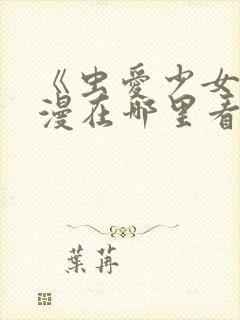 《虫爱少女
漫在哪里看
葉苒